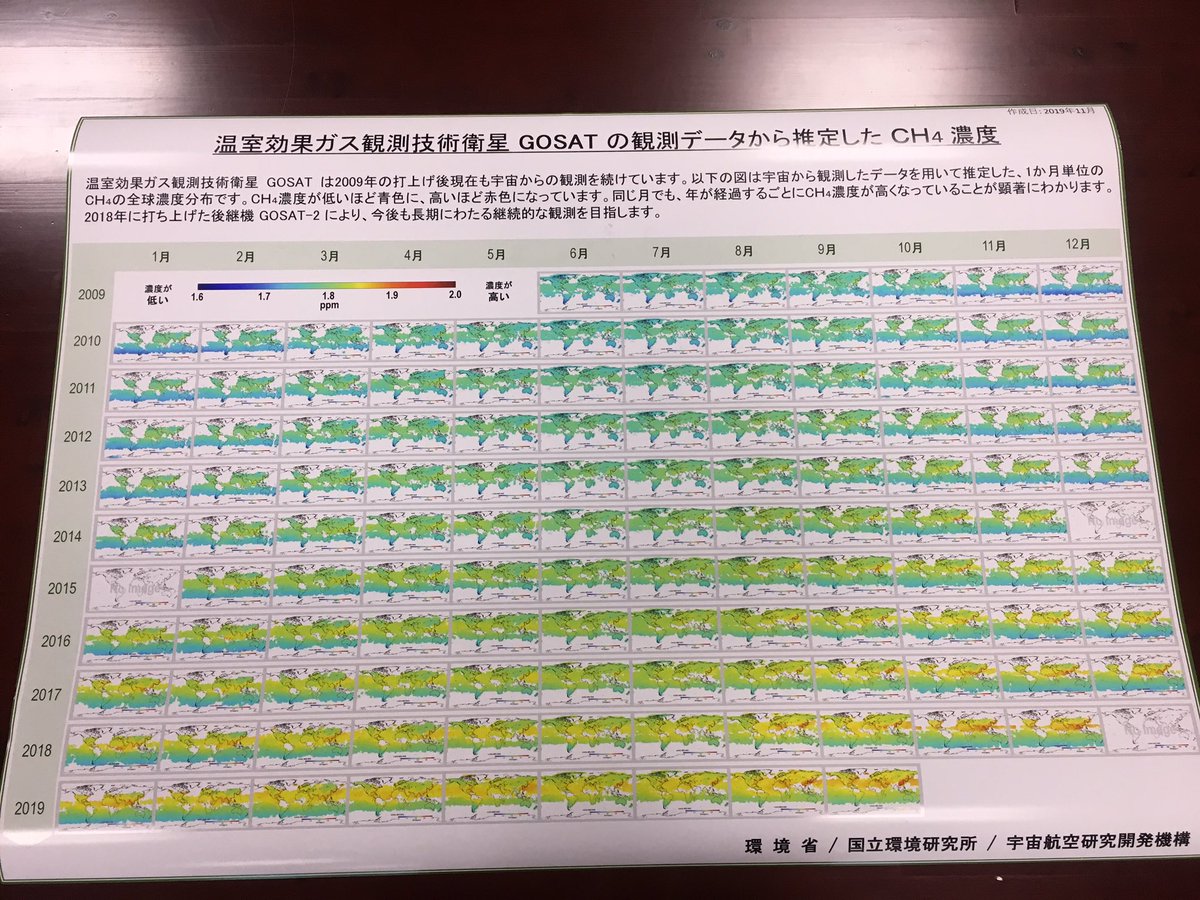 作成日: 2019年11月
温室効果ガス観測技術衛星 GOSAT の観測データから推定した CH4 濃度
温室効果ガス観測技術衛星 GOSAT は2009年の打上げ後現在も宇宙からの観測を続けています。以下の図は宇宙から観測したデータを用いて推定した、1か月単位の
CH4の全球濃度分布です。CH4濃度が低いほど青色に、高いほど赤色になっています。同じ月でも、年が経過するごとにCH4濃度が高くなっていることが顕著にわかります。
2018年に打ち上げた後継機 GOSAT-2 により、今後も長期にわたる継続的な観測を目指します。
1月 2月 3月 4月 5月 6月 7月 8月 9月 10月 11月 12月
2009
濃度が
低い
1.6 1.7 1.8 1.9 2.0
ppm
濃度が
高い
2010
2011
2012
2013
2014
No Image
2015
No Image
2016
2017
2018
No Image
2019
環 境 省 / 国立環境研究所 / 宇宙航空研究開発機構